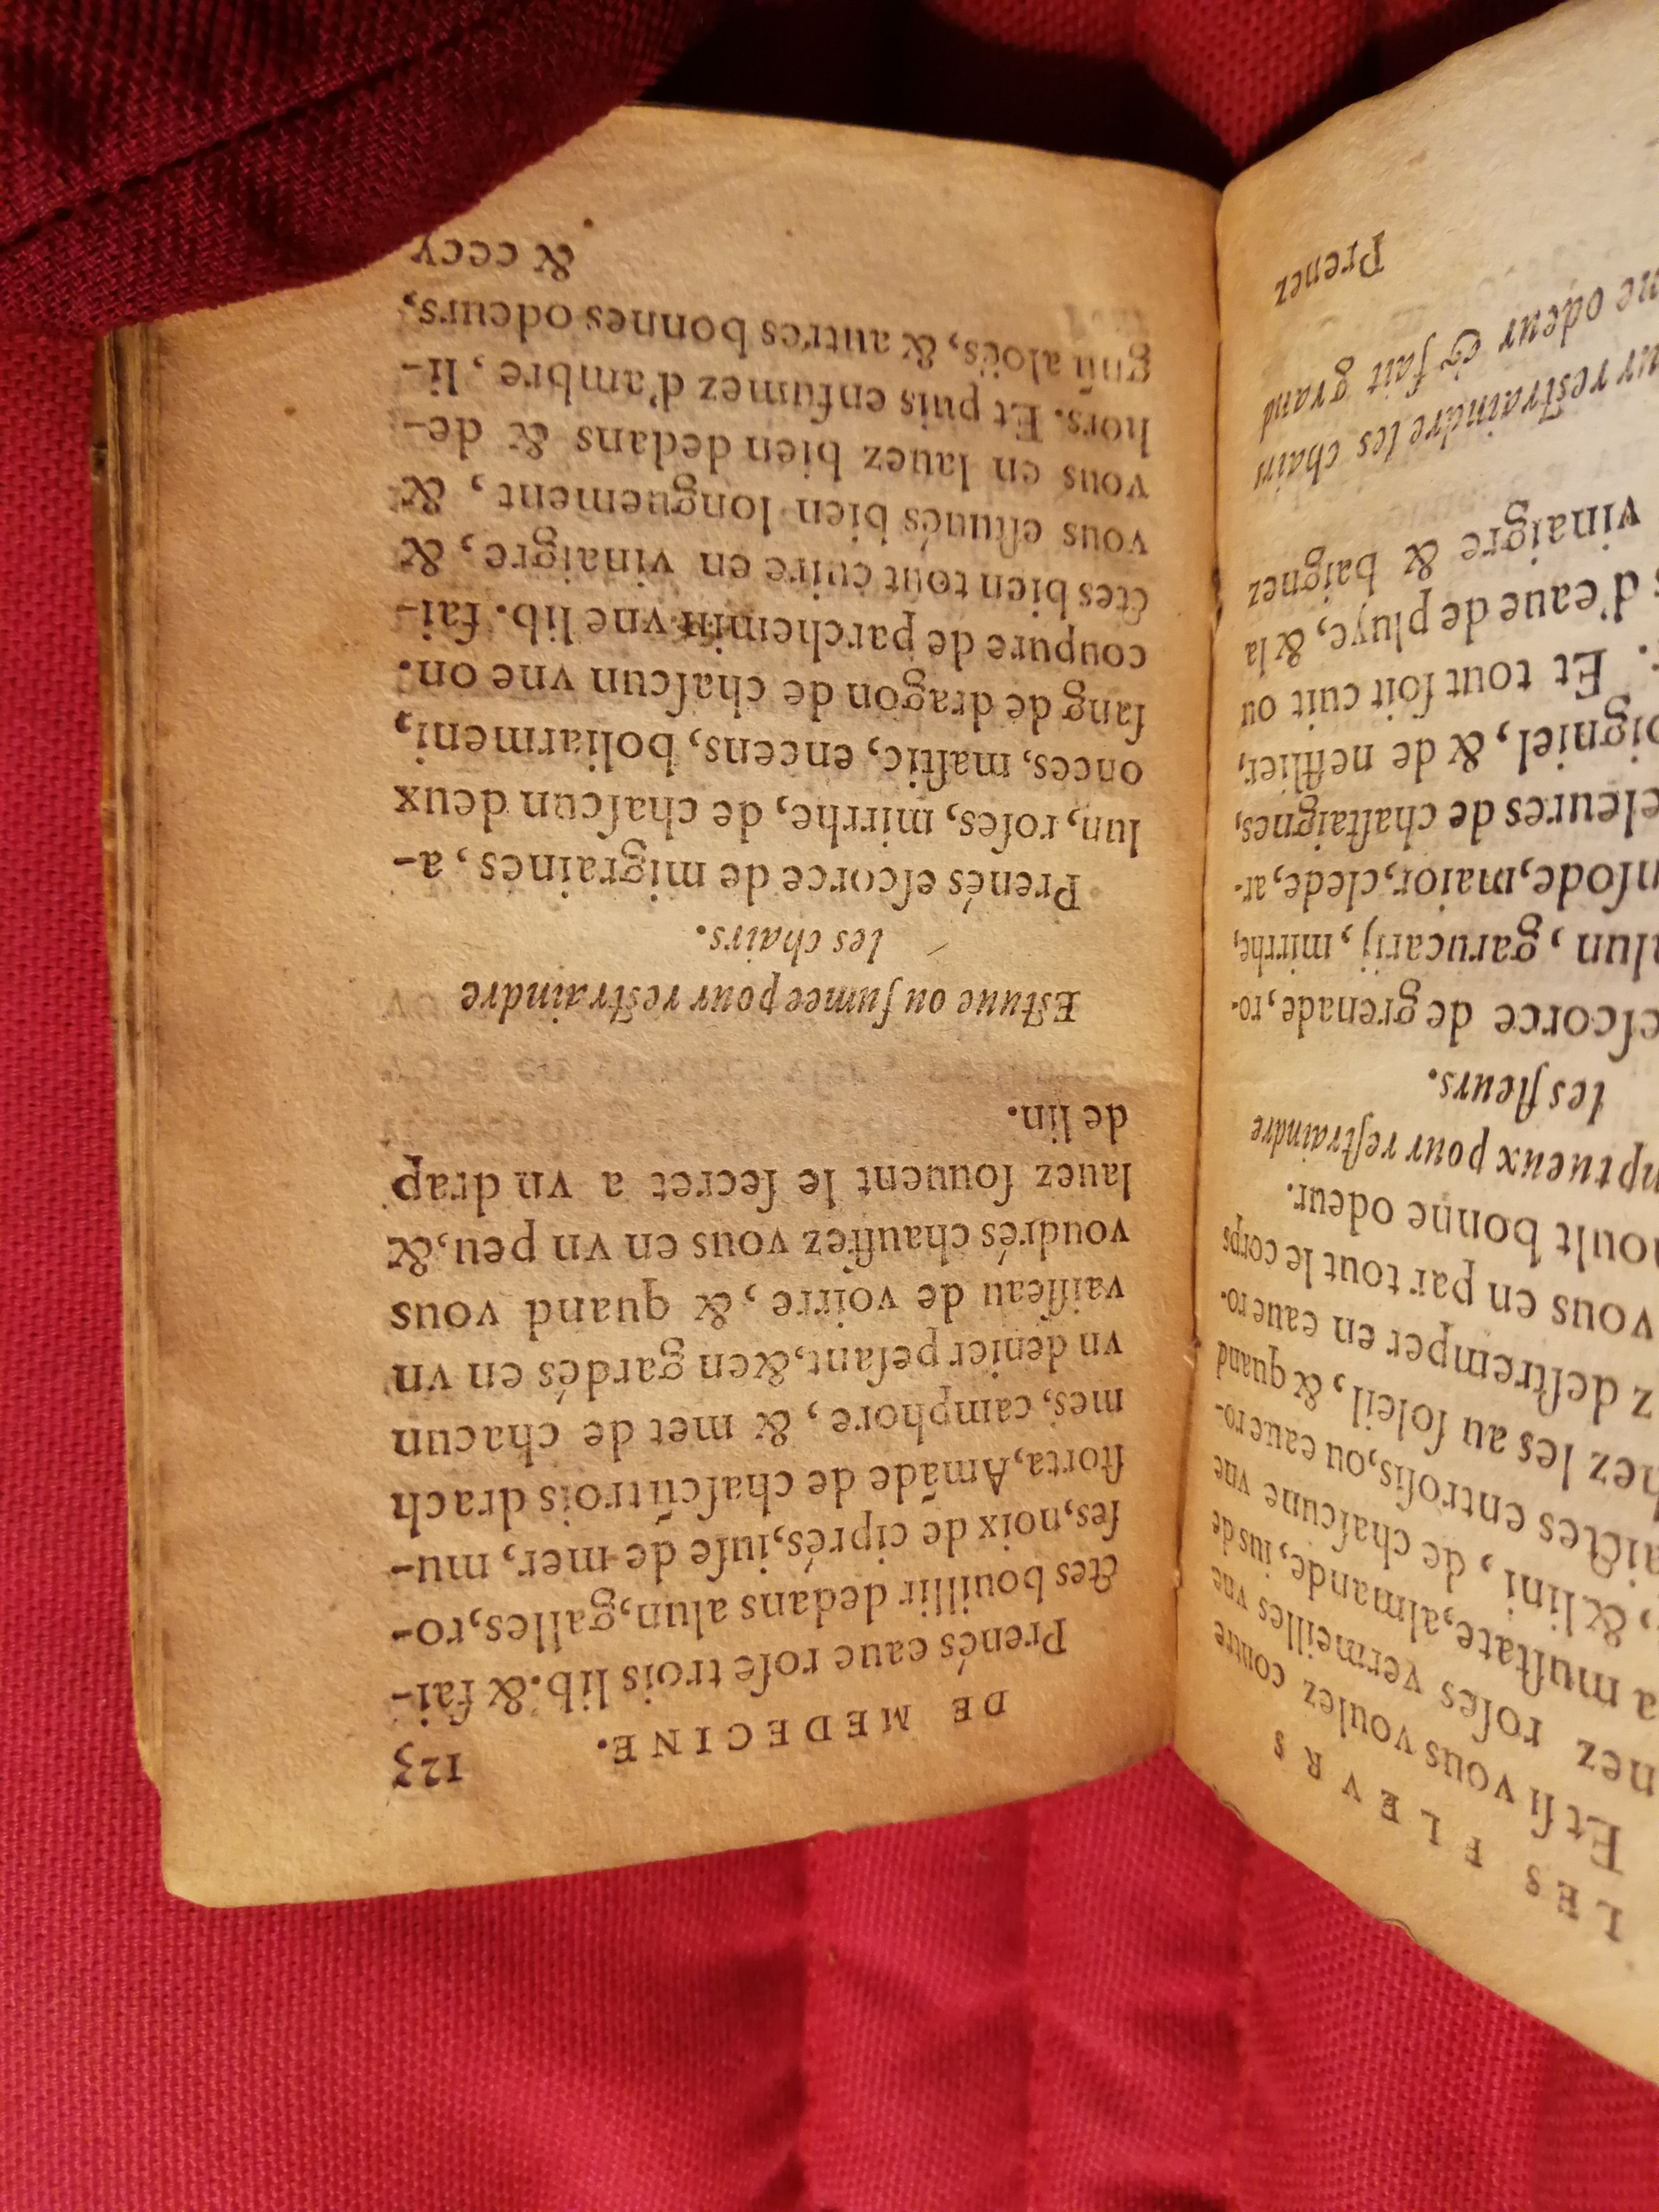 LES FLEVRS
Et ſi vous voulez contre
nez roſes vermeilles vne
a muſtate, almande, ius de
, & lini , de chaſcune vne
aictes entroſis, ou eaue ro-
hez les au ſoleil, & quand
z deſtremper en eaue ro-
vous en par tout le corps
oult bonne odeur.
mptueux pour reſtraindre
les fleurs.
eſcorce de grenade, ro-
alun , garucarij , mirrhe,
nſode, maior, clede, ar-
eleures de chaſtaignes,
oigniel, & de nefflier,
. Et tout ſoit cuit ou
s d'eaue de pluye, & la
vinaigre & baignez
ur reſtraindre les chairs
ne odeur & fait grand
Prenez
DE MEDECINE. 123
Prenés eaue roſe trois lib. & fai-
ctes bouillir dedans alun, galles, ro-
ſes, noix de ciprés, iuſe de mer, mu-
ſtorta, Amāde de chaſcū trois drach
mes, camphore, & met de chacun
vn denier peſant, & en gardés en vn
vaiſſeau de voirre, & quand vous
voudrés chauffez vous en vn peu, &
lauez ſouuent le ſecret a vn drap
de lin.
Eſtuue ou fumee pour reſtraindre
les chairs.
Prenés eſcorce de migraines, a-
lun, roſes, mirrhe, de chaſcun deux
onces, maſtic, encens, boliarmeni,
ſang de dragon de chaſcun vne on.
coupure de parchemin vne lib. fai-
ctes bien tout cuire en vinaigre, &
vous eſtuués bien longuement, &
vous en lauez bien dedans & de-
hors. Et puis enfumez d'ambre, li-
gnū aloës, & autres bonnes odeurs,
& cecy